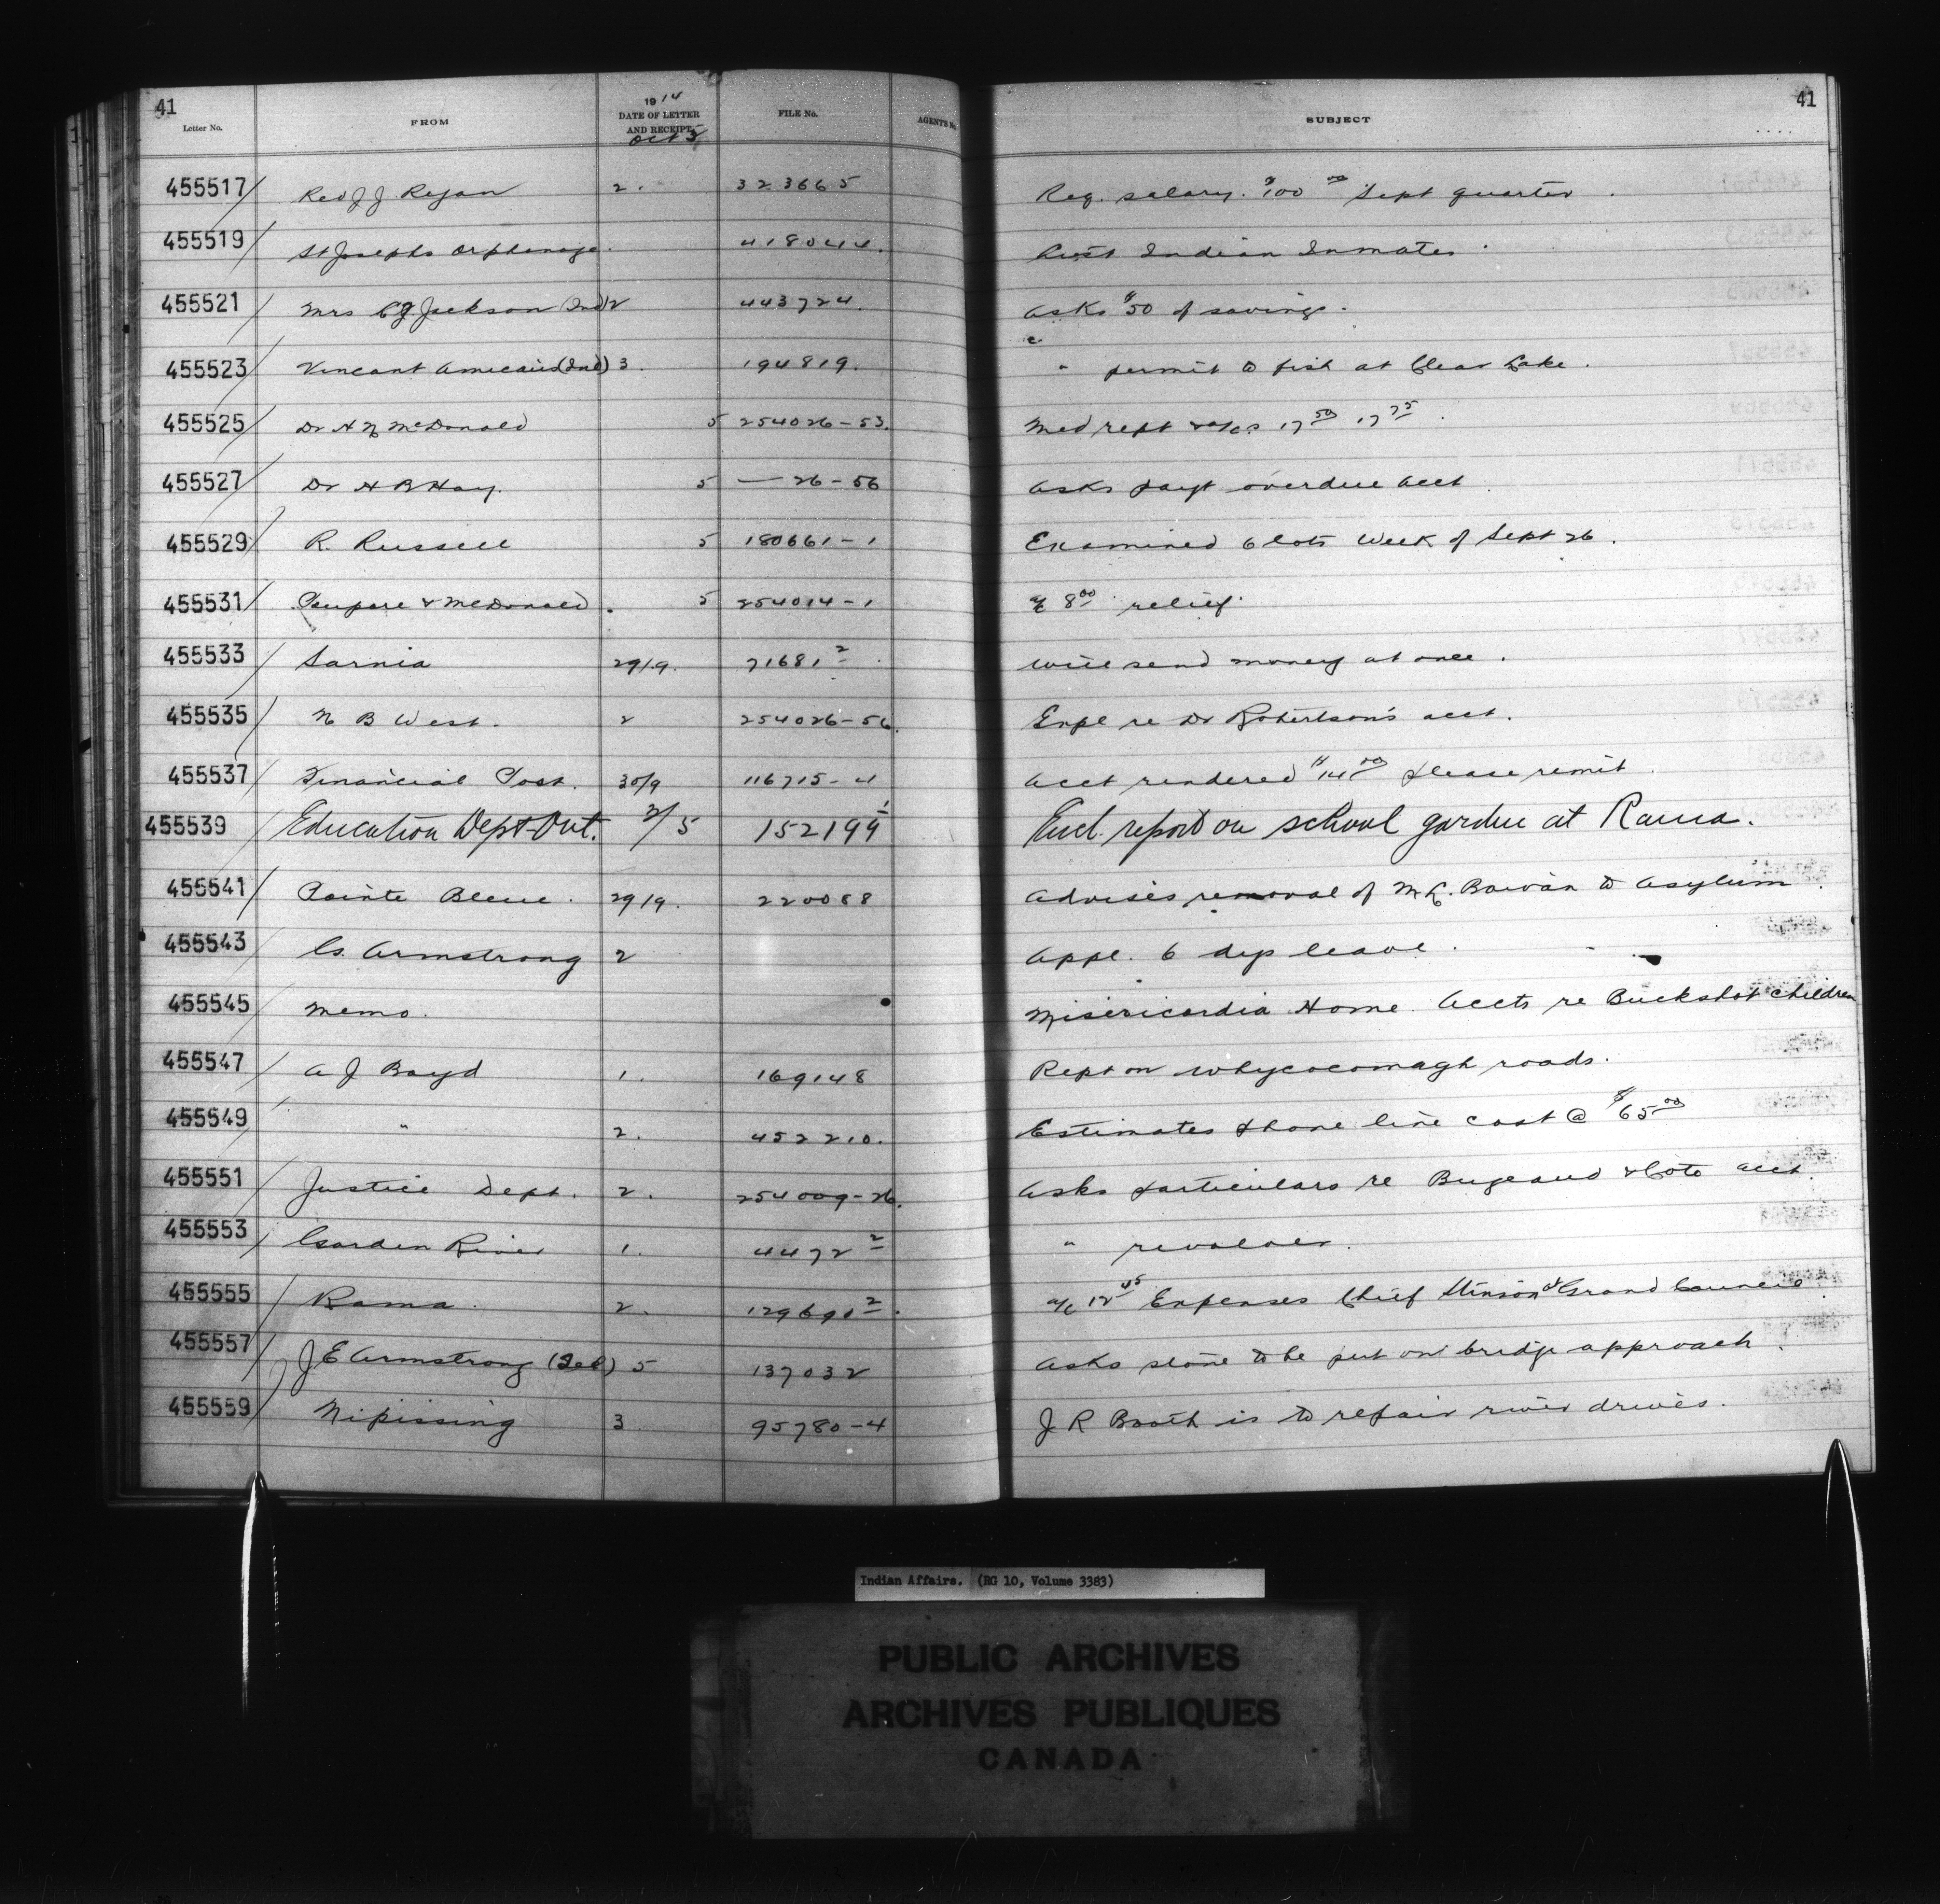 41 41
Letter No. FROM 1914 DATE OF LETTER AND RECEIPT Oct 5 FILE No. AGENT'S No. SUBJECT
455517 Rev J J Ryan 2. 323665 Req. salary. $100 00 Sept quarter.
455519 St Josephs Orphanage. 418044. Indian Inmates.
455521 Mrs C J Jackson (Ind) 2 443724. Asks $50 of savings.
455523 Vincent (Ind) 3. 194819. " permit to fish at Clear Lake.
455525 Dr A N McDonald 5 254026-53. Med rept & a/cs 17 50 17 75.
455527 Dr H B Hay. 5 — 26-56 Asks payt overdue acct.
455529 R. Russell 5 180661-1 Examined 6 lots Week of Sept 26.
455531 & McDonald. 5 254014-1 a/c 8 00 relief.
455533 Sarnia 29/9. 71681 2. Will send money at once.
455535 N B West. 2 254026-56. Expl re Dr Robertson's acct.
455537 Financial Post. 30/9 116715-4 Acct rendered $14 00 please remit.
455539 Education Dept Ont. 2/5 152199 1 Encl. report on school garden at Rama.
455541 Pointe Bleue. 29/9. 220088 Advises removal of M L. to Asylum.
455543 Cs. Armstrong 2 Appl. 6 dys leave.
455545 Memo. Misericordia Home. Accts re Buckshot children
455547 A J Boyd 1. 169148 Rept on Whycocomagh roads.
455549 " 2. 452210. Estimates phone line cost @ $65 00
455551 Justice Dept. 2. 254009-26. Asks particulars re Bugeaud & Cote acct.
455553 Garden River 1. 4472 2 " revolver.
455555 Rama. 2. 129690 2. a/c 12 45 Expenses Chief Stinson at Grand Council.
455557 J E Armstrong (Tel) 5 137032 Asks stone to be put on bridge approach.
455559 Nipissing 3 95780-4 J R Booth is to repair river drives.
Indian Affairs. (RG 10, Volume 3383)
PUBLIC ARCHIVES
ARCHIVES PUBLIQUES
CANADA